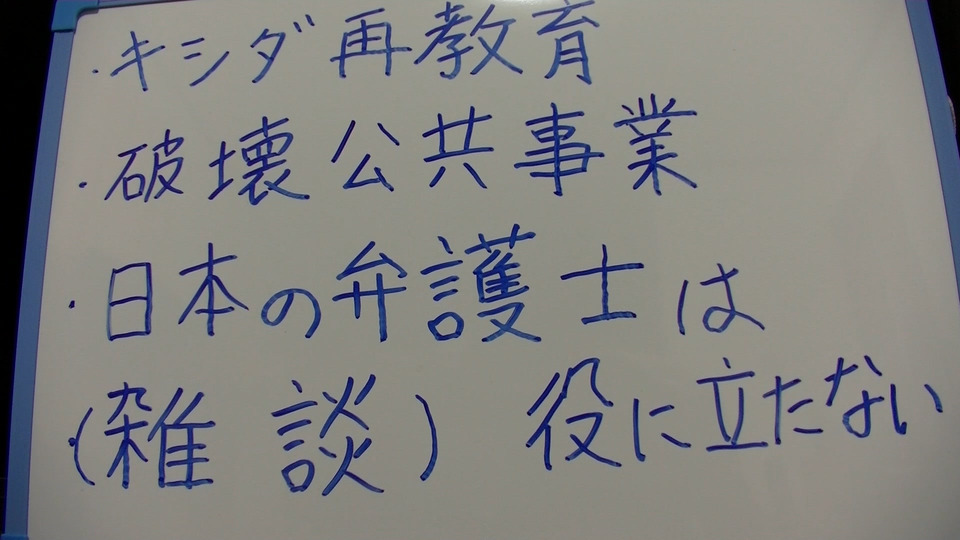 ・キシダ再教育
・破壊公共事業
・日本の弁護士は
・(雑談) 役に立たない